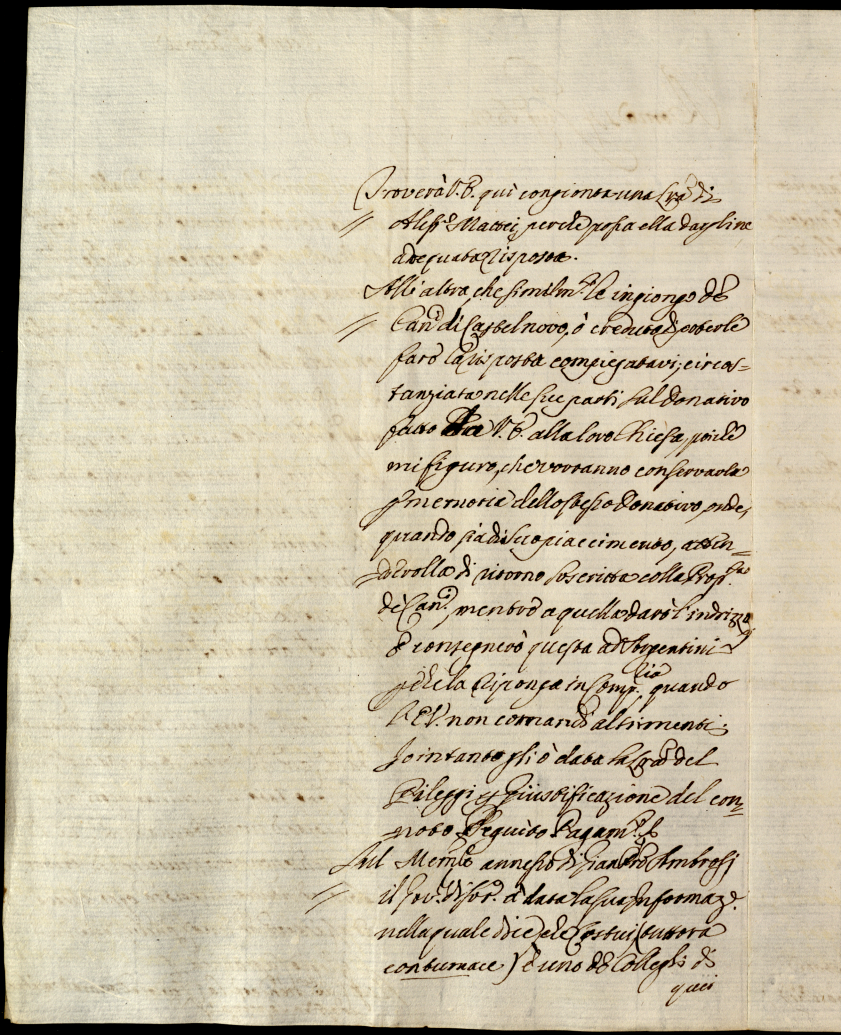 Troverà V.E. quì congionta una Lrã di
// Aless.º Mattei, perche possa ella dargline
adequata risposta.
All'altra, che similm.te le ingiongo de
// Can.ci di Castelnovo, ò creduto di poterle
fare la risposta compiegatavi; circos=
tanziata nelle sue parti sul donativo
fatto V.E. alla loro Chiesa, poiche
mi figuro, che vorranno conservarla
p memoria dello stesso Donativo, onde,
quando sia di suo piaccimento, atten=
derolla di ritorno soscritta colla Prop.
de Can.ci, mentre a quella darò l'indrizzo
e consegnerò questa ad Argentini
pche la riponga in Comp.ria quando
l'E.V. non comandi altrimenti;
Io intanto gli ò data la Lrã del
Pileggi p giustificazione del con=
noto seguito Pagam.to
Sul Mem.le annesso di Gian Pro Ambrosj
// il Gov. di Sor. à data la sua Informaz.e
nella quale dice, che Costui (tuttora
contumace) è uno de Colleghi di
quei